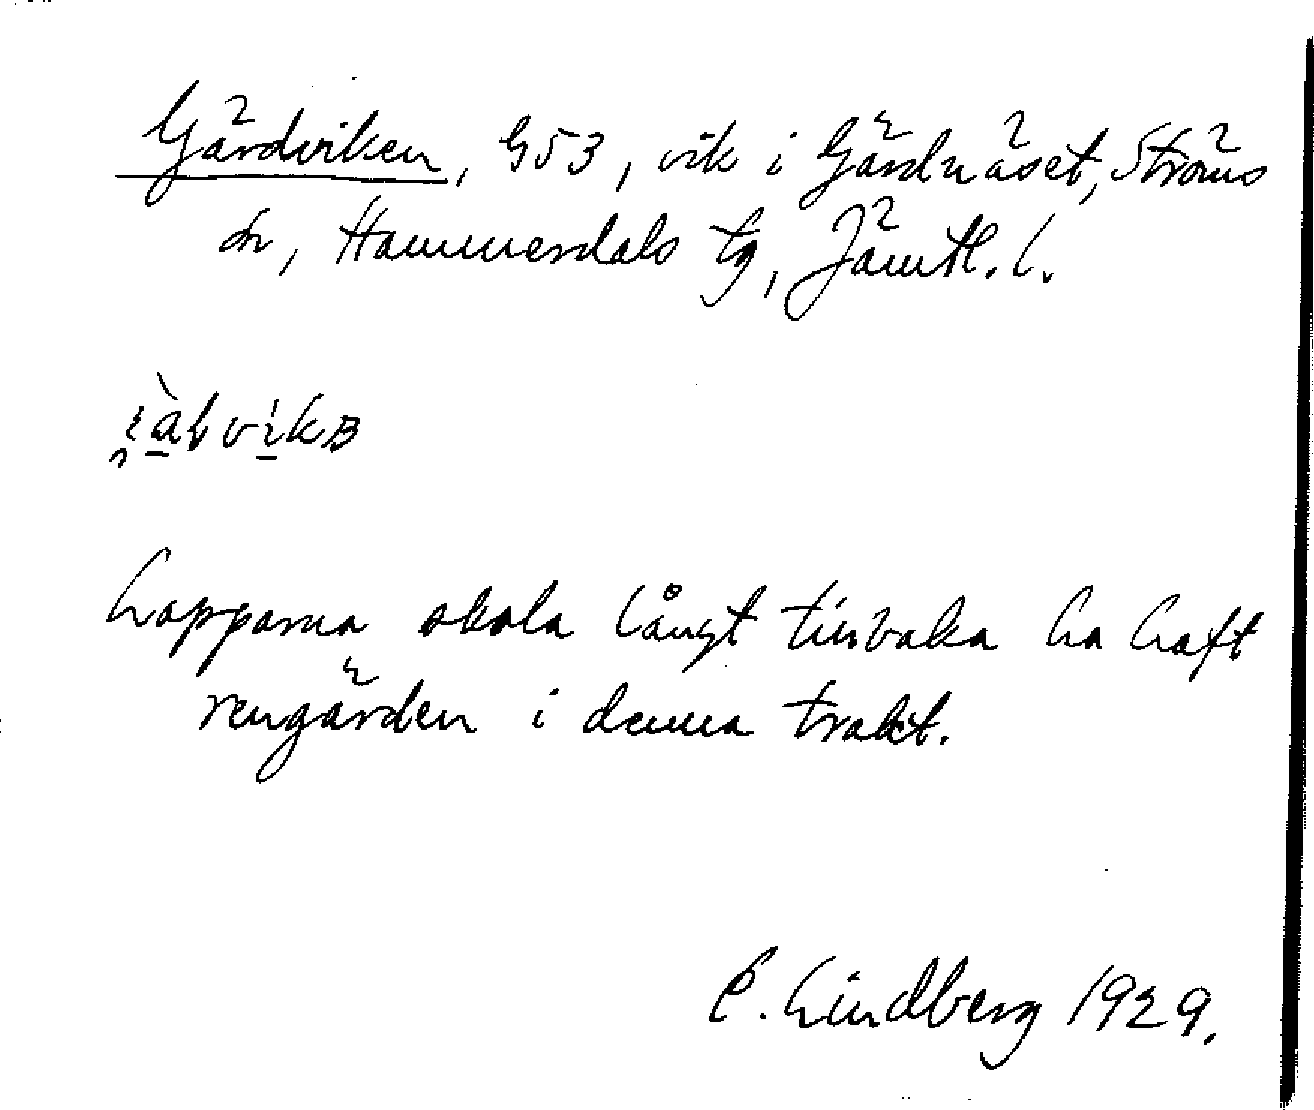 Gärdviken, G53, vik i Gärdnäset, Ströms
sn, Hammerdals tg, Jämtl. l.
Lapparna skola långt tillbaka ha haft
rengärden i denna trakt.
E. Lindberg 1929.